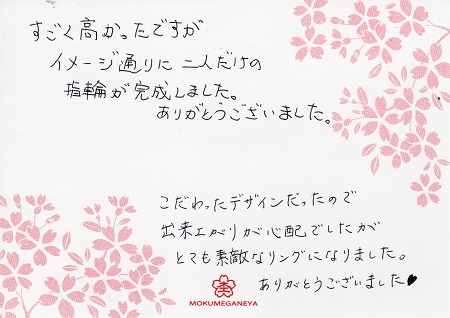 すごく高かったですが
イメージ通りに二人だけの
指輪が完成しました。
ありがとうございました。
こだわったデザインだったので
出来上がりが心配でしたが
とても素敵なリングになりました。
ありがとうございました♥
MOKUMEGANEYA